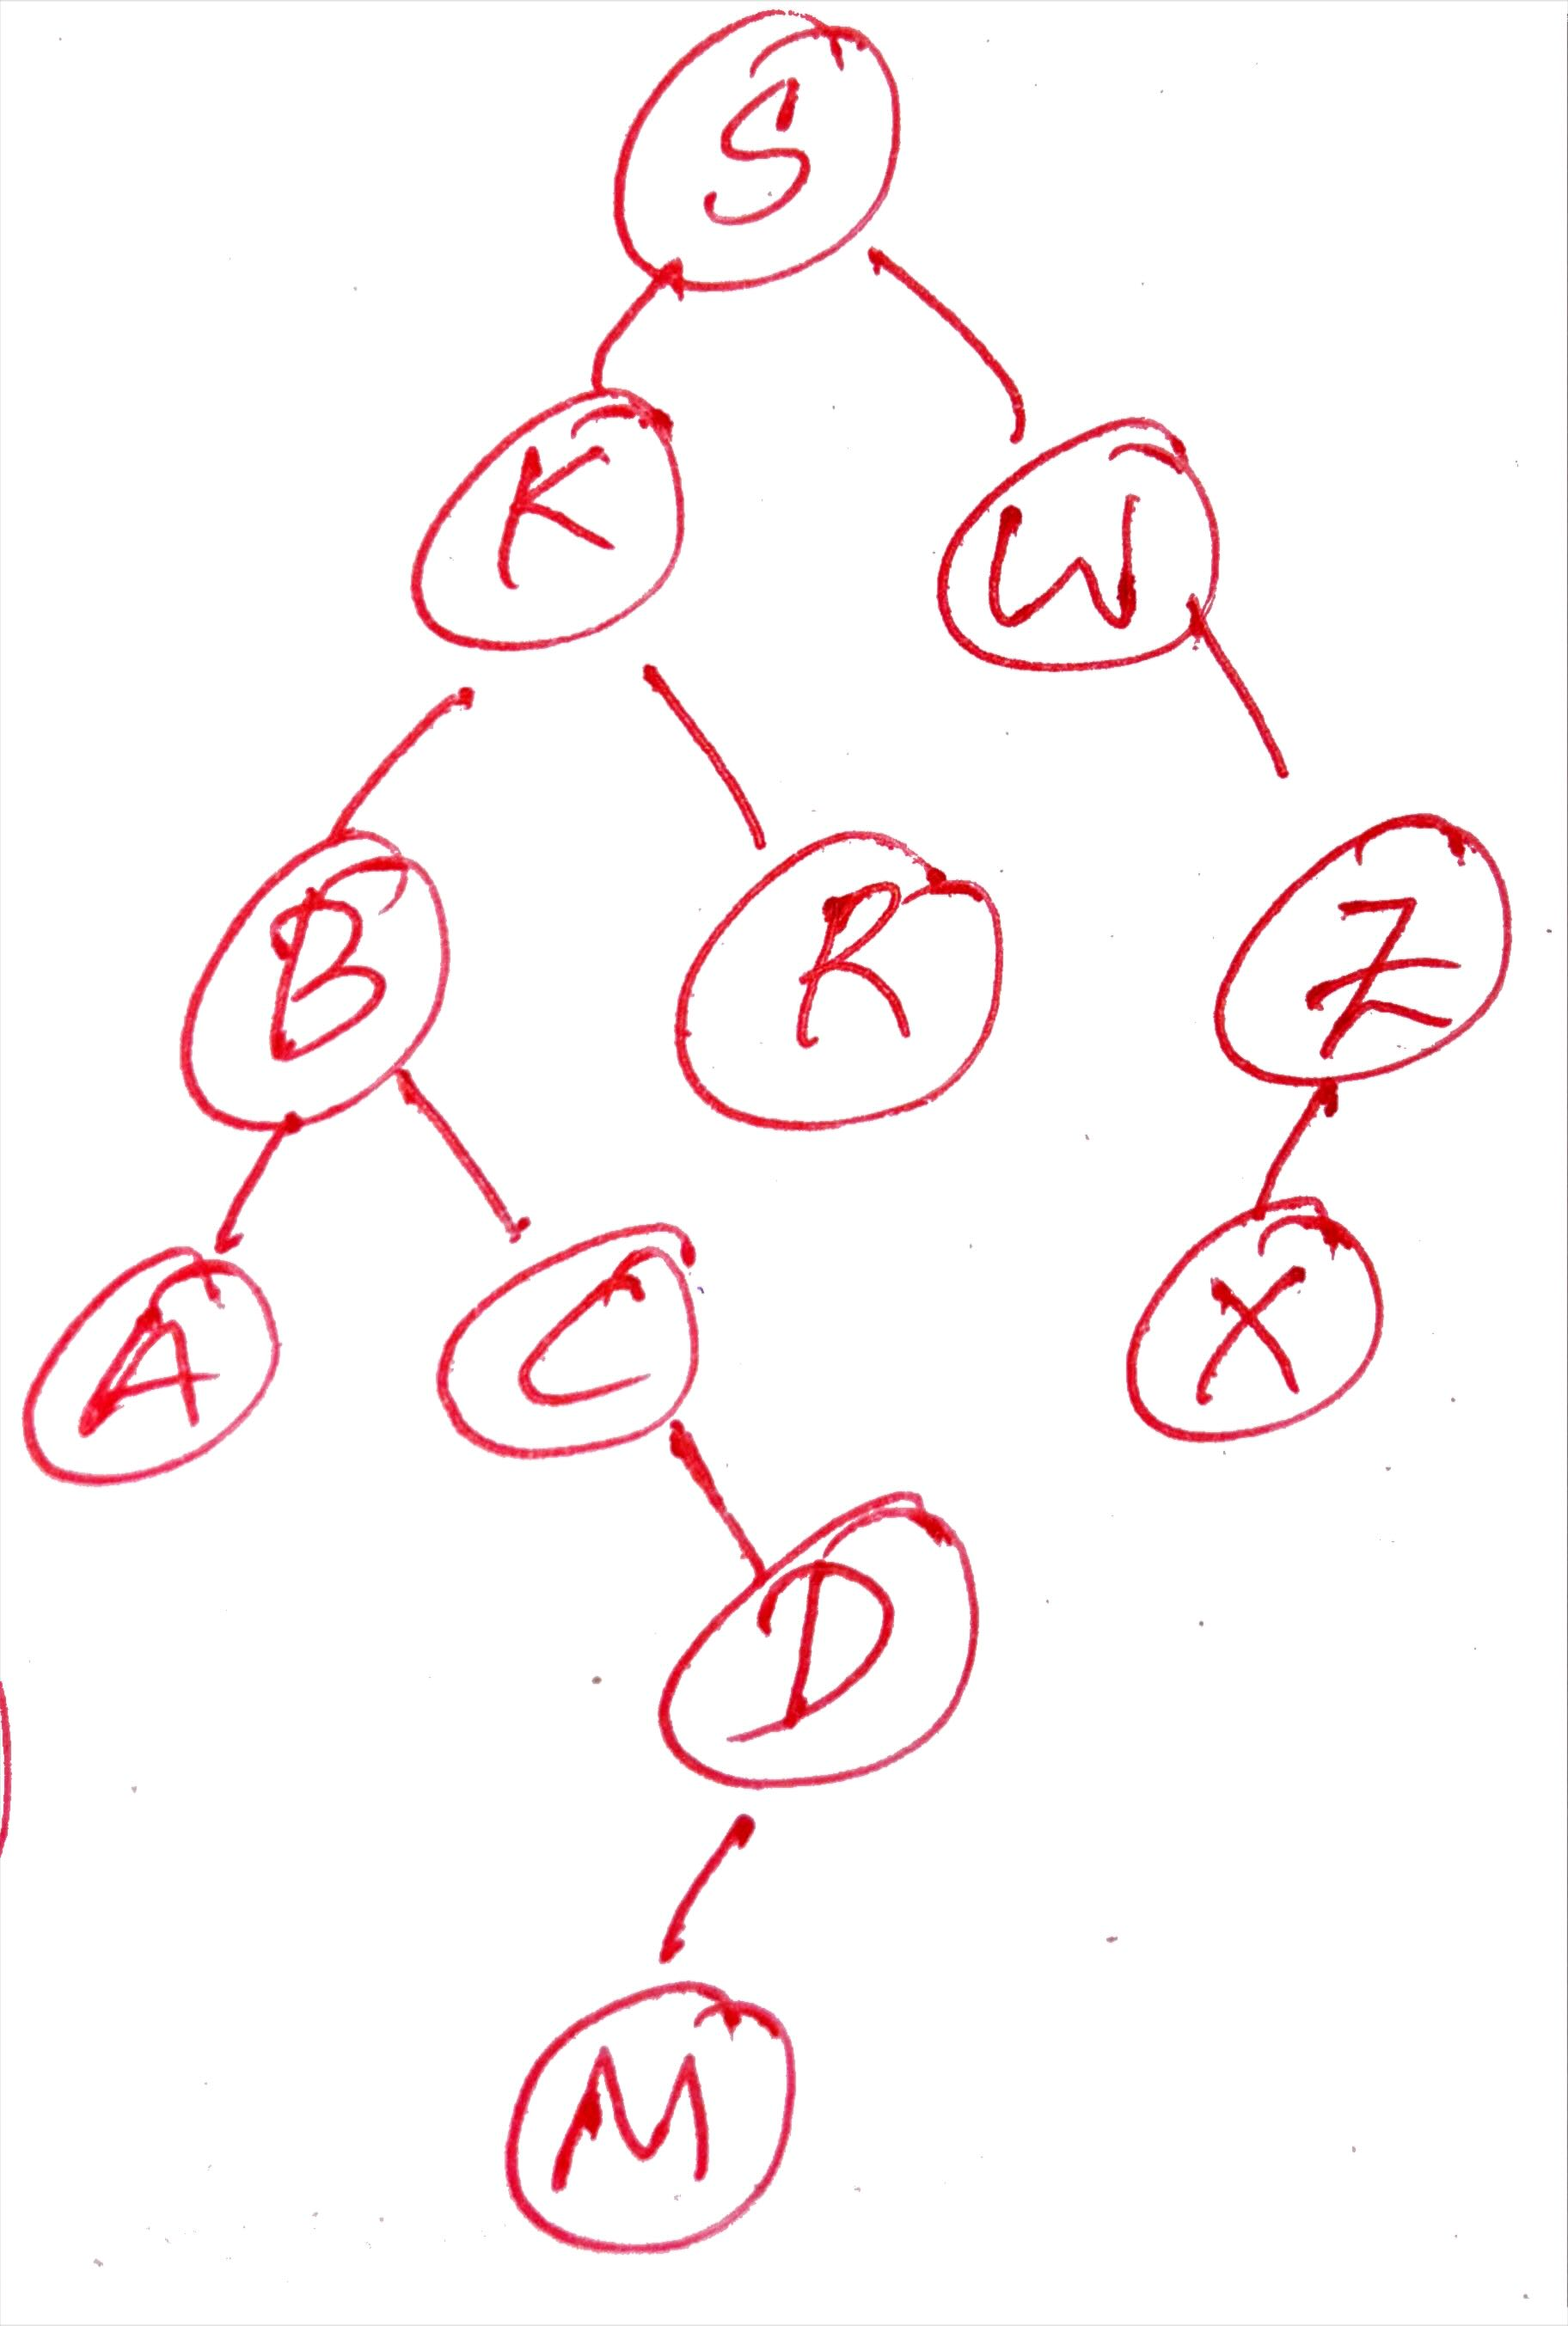 S
K W
B R Z
A C X
D
M